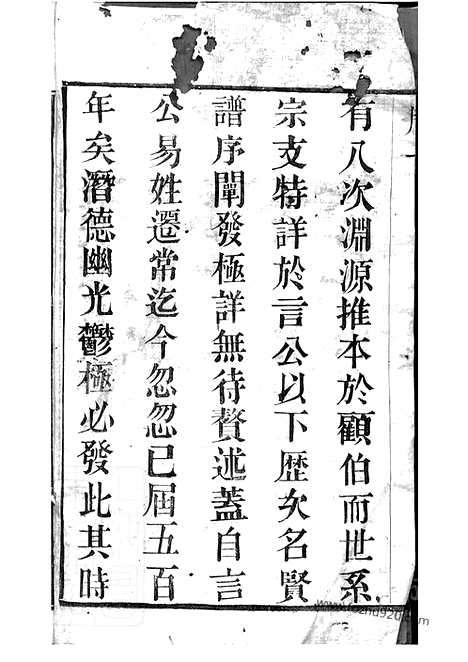 有八次淵源推本於顧伯而世系
宗支特詳於言公以下歷次名賢
譜序闡發極詳無待贅述蓋自言
公易姓遷常迄今忽忽已屆五百
年矣潛德幽光鬱極必發此其時